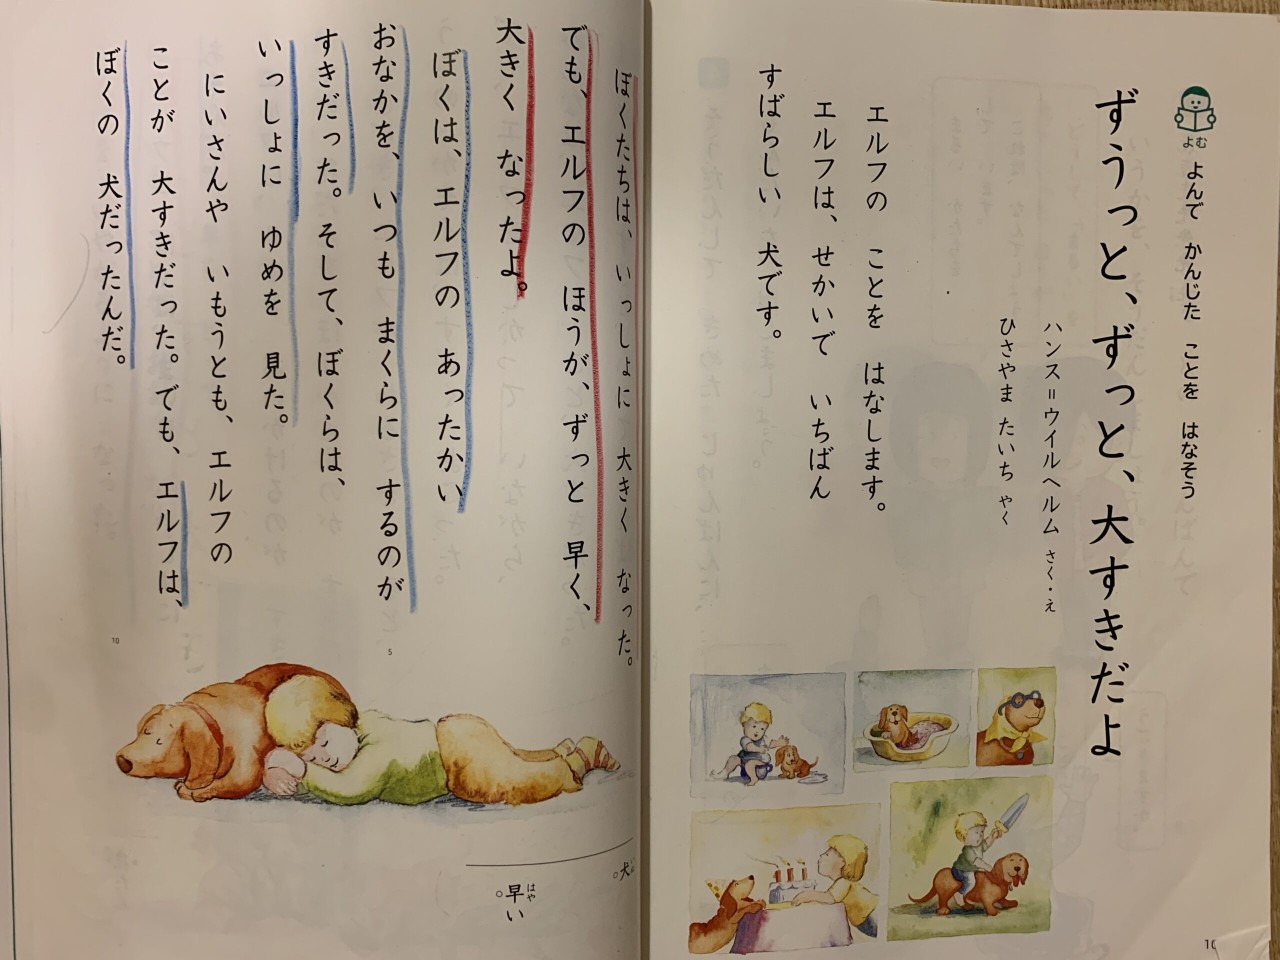 よむ
よんで　かんじた　ことを　はなそう
ずうっと、ずっと、大すきだよ
ハンス＝ウイルヘルム　さく・え
ひさやま　たいち　やく
エルフの　ことを　はなします。
エルフは、せかいで　いちばん
すばらしい　犬です。
ぼくたちは、いっしょに　大きく　なった。
でも、エルフの　ほうが、ずっと　早く、
大きく　なったよ。
ぼくは、エルフの　あったかい
おなかを、いつも　まくらに　するのが
すきだった。そして、ぼくらは、
いっしょに　ゆめを　見た。
にいさんや　いもうとも、エルフの
ことが　大すきだった。でも、エルフは、
ぼくの　犬だったんだ。
5
10
。犬
はや
。早い